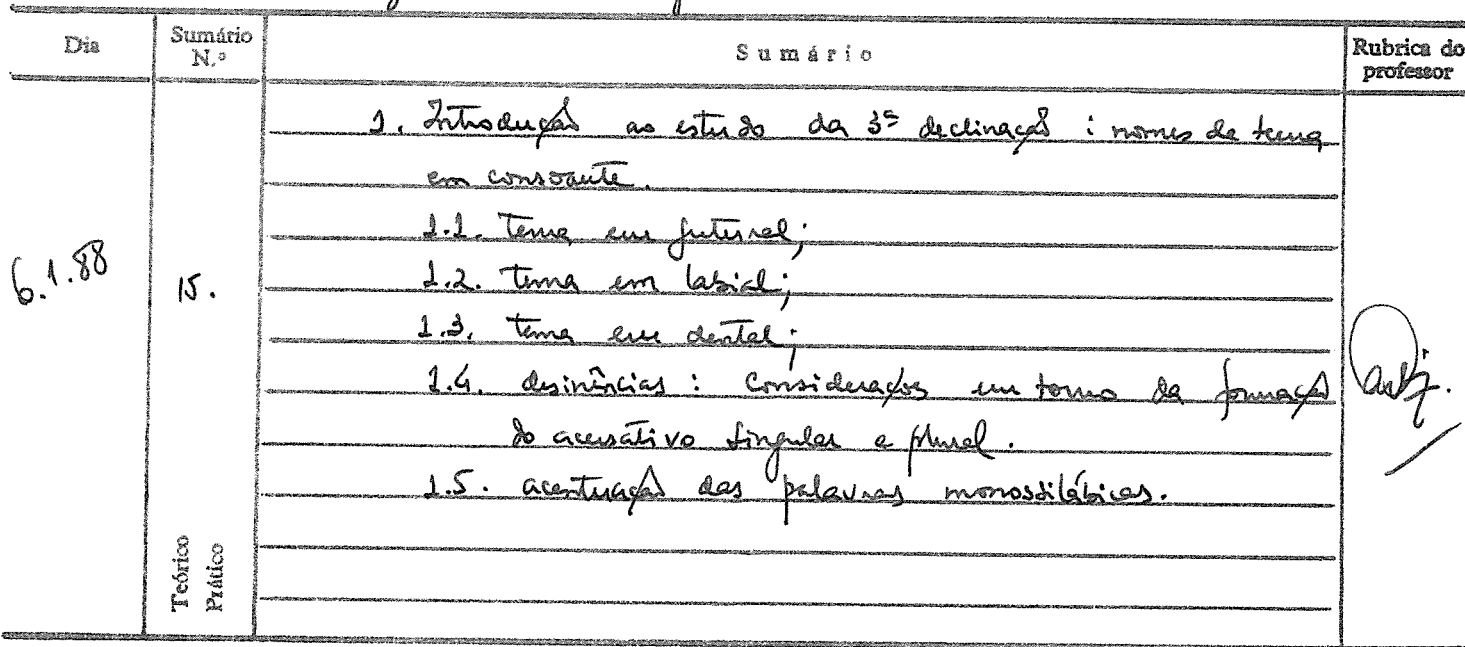 Dia
Sumário N.º
Sumário
Rubrica do professor
6.1.88
15.
1. Introdução ao estudo da 3ª declinação : nomes de tema
em consoante.
1.1. Tema em gutural;
1.2. tema em labial;
1.3. tema em dental;
1.4. desinências : considerações em torno da formação
do acusativo singular e plural.
1.5. acentuação das palavras monossilábicas.
Teórico
Prático